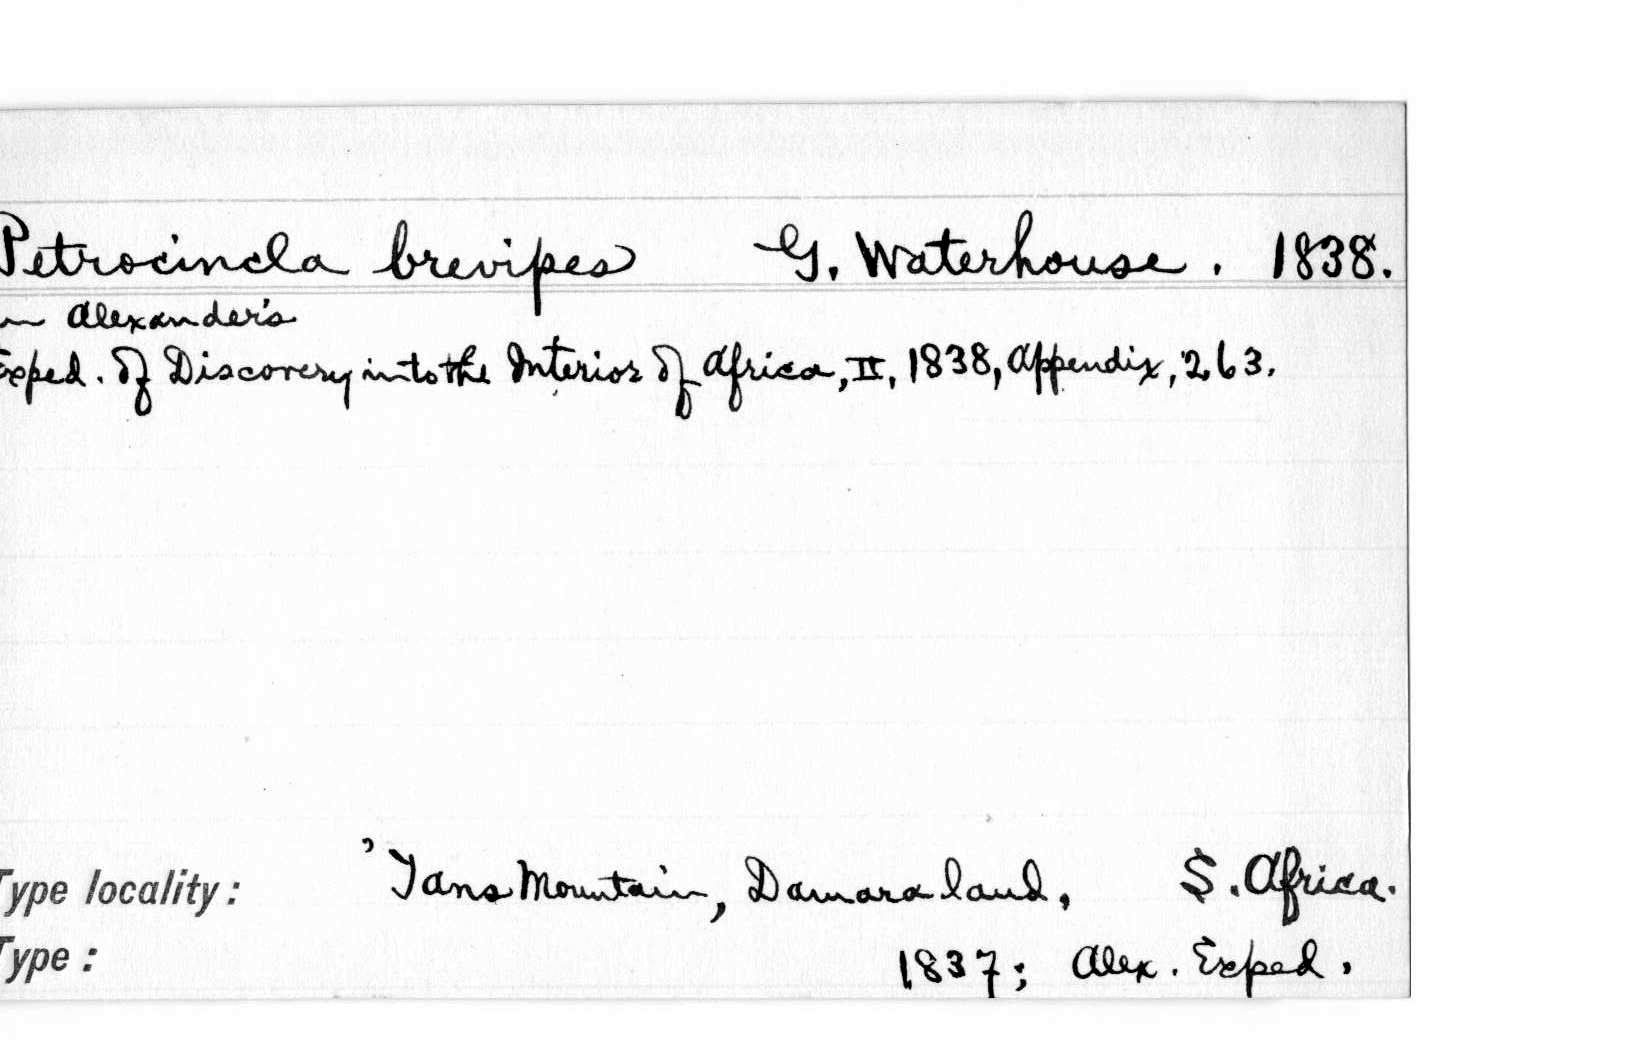 Petrocincla brevipes G. Waterhouse. 1838.
in Alexander's
Exped. of Discovery into the Interior of Africa, II, 1838, Appendix, 263.
Type locality: 'Tans Mountain, Damara land, S. Africa.
Type: 1837; Alex. Exped.